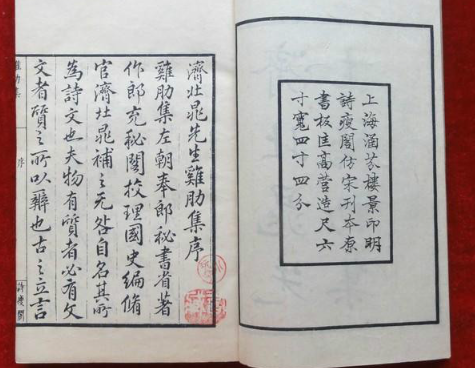 上海涵芬樓景印明
詩瘦閣仿宋刊本原
書板匡高營造尺六
寸寬四寸四分
濟北晁先生雞肋集序
雞肋集左朝奉郎秘書省著
作郎充秘閣校理國史編脩
官濟北晁補之无咎自名其所
為詩文也夫物有質者必有文
文者質之所以辨也古之立言
雞肋集
序
詩瘦閣